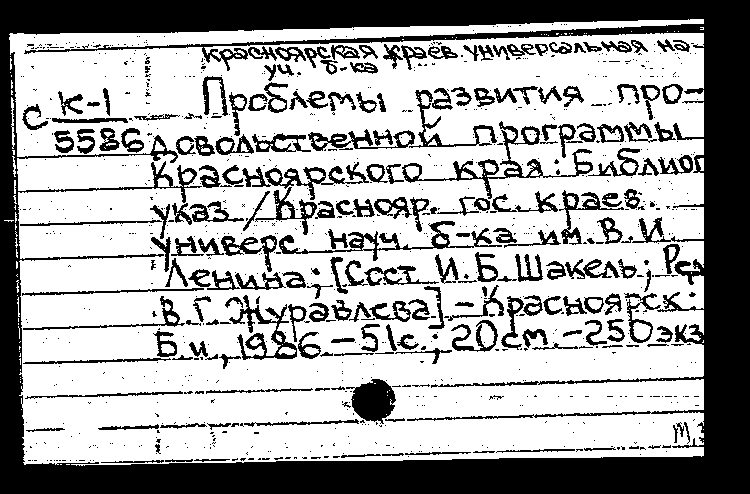 Красноярская краев. универсальная на-
уч. б-ка
С К-1
5586
Проблемы развития про-
довольственной программы
Красноярского края: Библиог
указ /Краснояр. гос. краев.
универс. науч. б-ка им. В. И.
Ленина; [Сост. И. Б. Шакель; Ред
В. Г. Журавлева] - Красноярск:
Б. и., 1986. - 51 с.; 20 см. - 250 экз